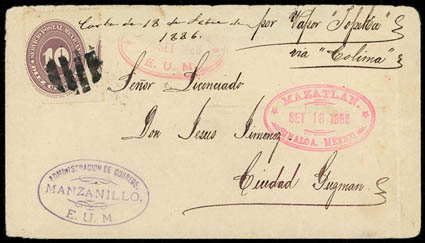 Carta de 18 de
1886.
por Vapor
via "Colima"
SERVICIO POSTAL MEXICANO
10
SET
E. U. M.
Señor Licenciado
MAZATLAN.
SET 18 1886
SINALOA, MEXICO
Don Jesus Jimenez
Ciudad Guzman.
ADMINISTRACION DE CORREOS.
MANZANILLO,
E. U. M